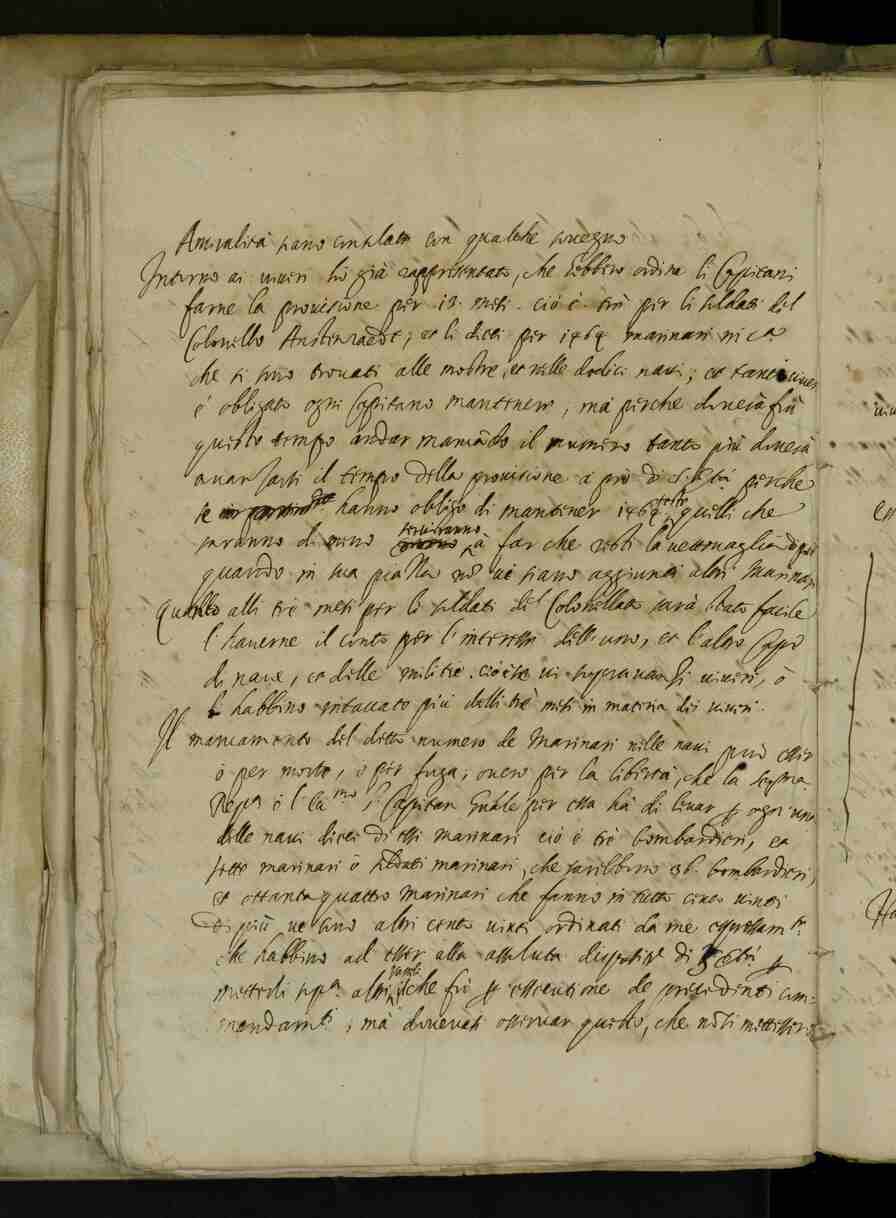 Amiralità siano consolati con qualche sovegno
Intorno ai viveri hò già rappresentato, che hebbero ordine li Capitani
farne la provisione per 13. mesi. ciò è tre per li soldati del
Colonello, et li dieci per 1464 marinari in ca.
che si sono trovati alle mostre, et nelle dodici navi; et tanti
è obligato ogni Capitano mantenere, mà perche doverà frà
questo tempo andar mancando il numero tanto più doverà
avanzarsi il tempo della provisione à prò di perche
se hanno obligo di mantener 1464 teste quelli che
saranno di meno serviranno à far che resti la vettovaglia
quando in sua piazza nō vi siano aggiunti altri Marinari
Quanto alli trè mesi per li soldati del Colonellato sarà stato facile
l'haverne il conto per l'interesse dell'uno, et l'altro Capo
di nave, et delle militie. cioè se vi sopravanzi viveri, ò
habbino intaccato più delli trè mesi in materia dei viveri.
Il mancamento del detto numero de Marinari nelle navi può esser
ò per morte, ò per fuga, overo per la libertà, che la
Repca. ò l' Capitan Gñale per essa hà di levar ꝑ ogni una
delle navi dieci di essi marinari ciò è trè bombardieri, et
sette marinari ò marinari, che sarebbero 36. bombardieri,
et ottantaquattro marinari che fanno in tutto cento vinti
Di più ve sono altri cento vinti ordinati da me
che habbino ad esser alla assoluta dispositne. di ꝑ
metterli sopa. altri che fù ꝑ essecutione de precedenti com=
mandamti.; mà dovevasi osservar questo, che nō si mettessero